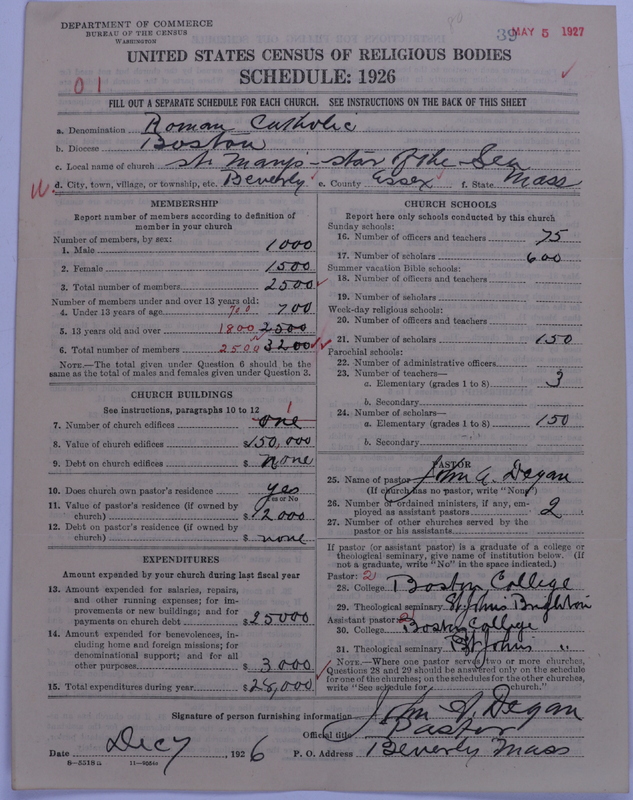 DEPARTMENT OF COMMERCE
BUREAU OF THE CENSUS
WASHINGTON
39 MAY 5 1927
UNITED STATES CENSUS OF RELIGIOUS BODIES
SCHEDULE: 1926
01
FILL OUT A SEPARATE SCHEDULE FOR EACH CHURCH. SEE INSTRUCTIONS ON THE BACK OF THIS SHEET
a. Denomination Roman Catholic
b. Diocese Boston
c. Local name of church St. Mary's - Star of the Sea
d. City, town, village, or township, etc. Beverly e. County Essex f. State Mass
MEMBERSHIP
Report number of members according to definition of
member in your church
Number of members, by sex:
1. Male 1000
2. Female 1500
3. Total number of members 2500
Number of members under and over 13 years old:
4. Under 13 years of age 700 700
5. 13 years old and over 1800 2500
6. Total number of members 2500 3200
NOTE.—The total given under Question 6 should be the
same as the total of males and females given under Question 3.
CHURCH BUILDINGS
See instructions, paragraphs 10 to 12
7. Number of church edifices one 1
8. Value of church edifices $150,000
9. Debt on church edifices $ none
10. Does church own pastor's residence yes
Yes or No
11. Value of pastor's residence (if owned by
church) $12000
12. Debt on pastor's residence (if owned by
church) $ none
EXPENDITURES
Amount expended by your church during last fiscal year
13. Amount expended for salaries, repairs,
and other running expenses; for im-
provements or new buildings; and for
payments on church debt $25000
14. Amount expended for benevolences, in-
cluding home and foreign missions; for
denominational support; and for all
other purposes $3000
15. Total expenditures during year $28,000
CHURCH SCHOOLS
Report here only schools conducted by this church
Sunday schools:
16. Number of officers and teachers 75
17. Number of scholars 600
Summer vacation Bible schools:
18. Number of officers and teachers
19. Number of scholars
Week-day religious schools:
20. Number of officers and teachers
21. Number of scholars 150
Parochial schools:
22. Number of administrative officers
23. Number of teachers—
a. Elementary (grades 1 to 8) 3
b. Secondary
24. Number of scholars—
a. Elementary (grades 1 to 8) 150
b. Secondary
PASTOR
25. Name of pastor John A. Degan
(If church has no pastor, write "None")
26. Number of ordained ministers, if any, em-
ployed as assistant pastors 2
27. Number of other churches served by the
pastor or his assistants
If pastor (or assistant pastor) is a graduate of a college or
theological seminary, give name of institution below. (If
not a graduate, write "No" in the space indicated.)
Pastor: 2
28. College Boston College
29. Theological seminary St Johns Brighton
Assistant pastor: 2
30. College Boston College
31. Theological seminary St Johns "
NOTE.—Where one pastor serves two or more churches,
Questions 28 and 29 should be answered only on the schedule
for one of the churches; on the schedules for the other churches,
write "See schedule for church."
Signature of person furnishing information John A. Degan
Official title Pastor
Date Dec 7 1926 P. O. Address Beverly Mass
8-5518a